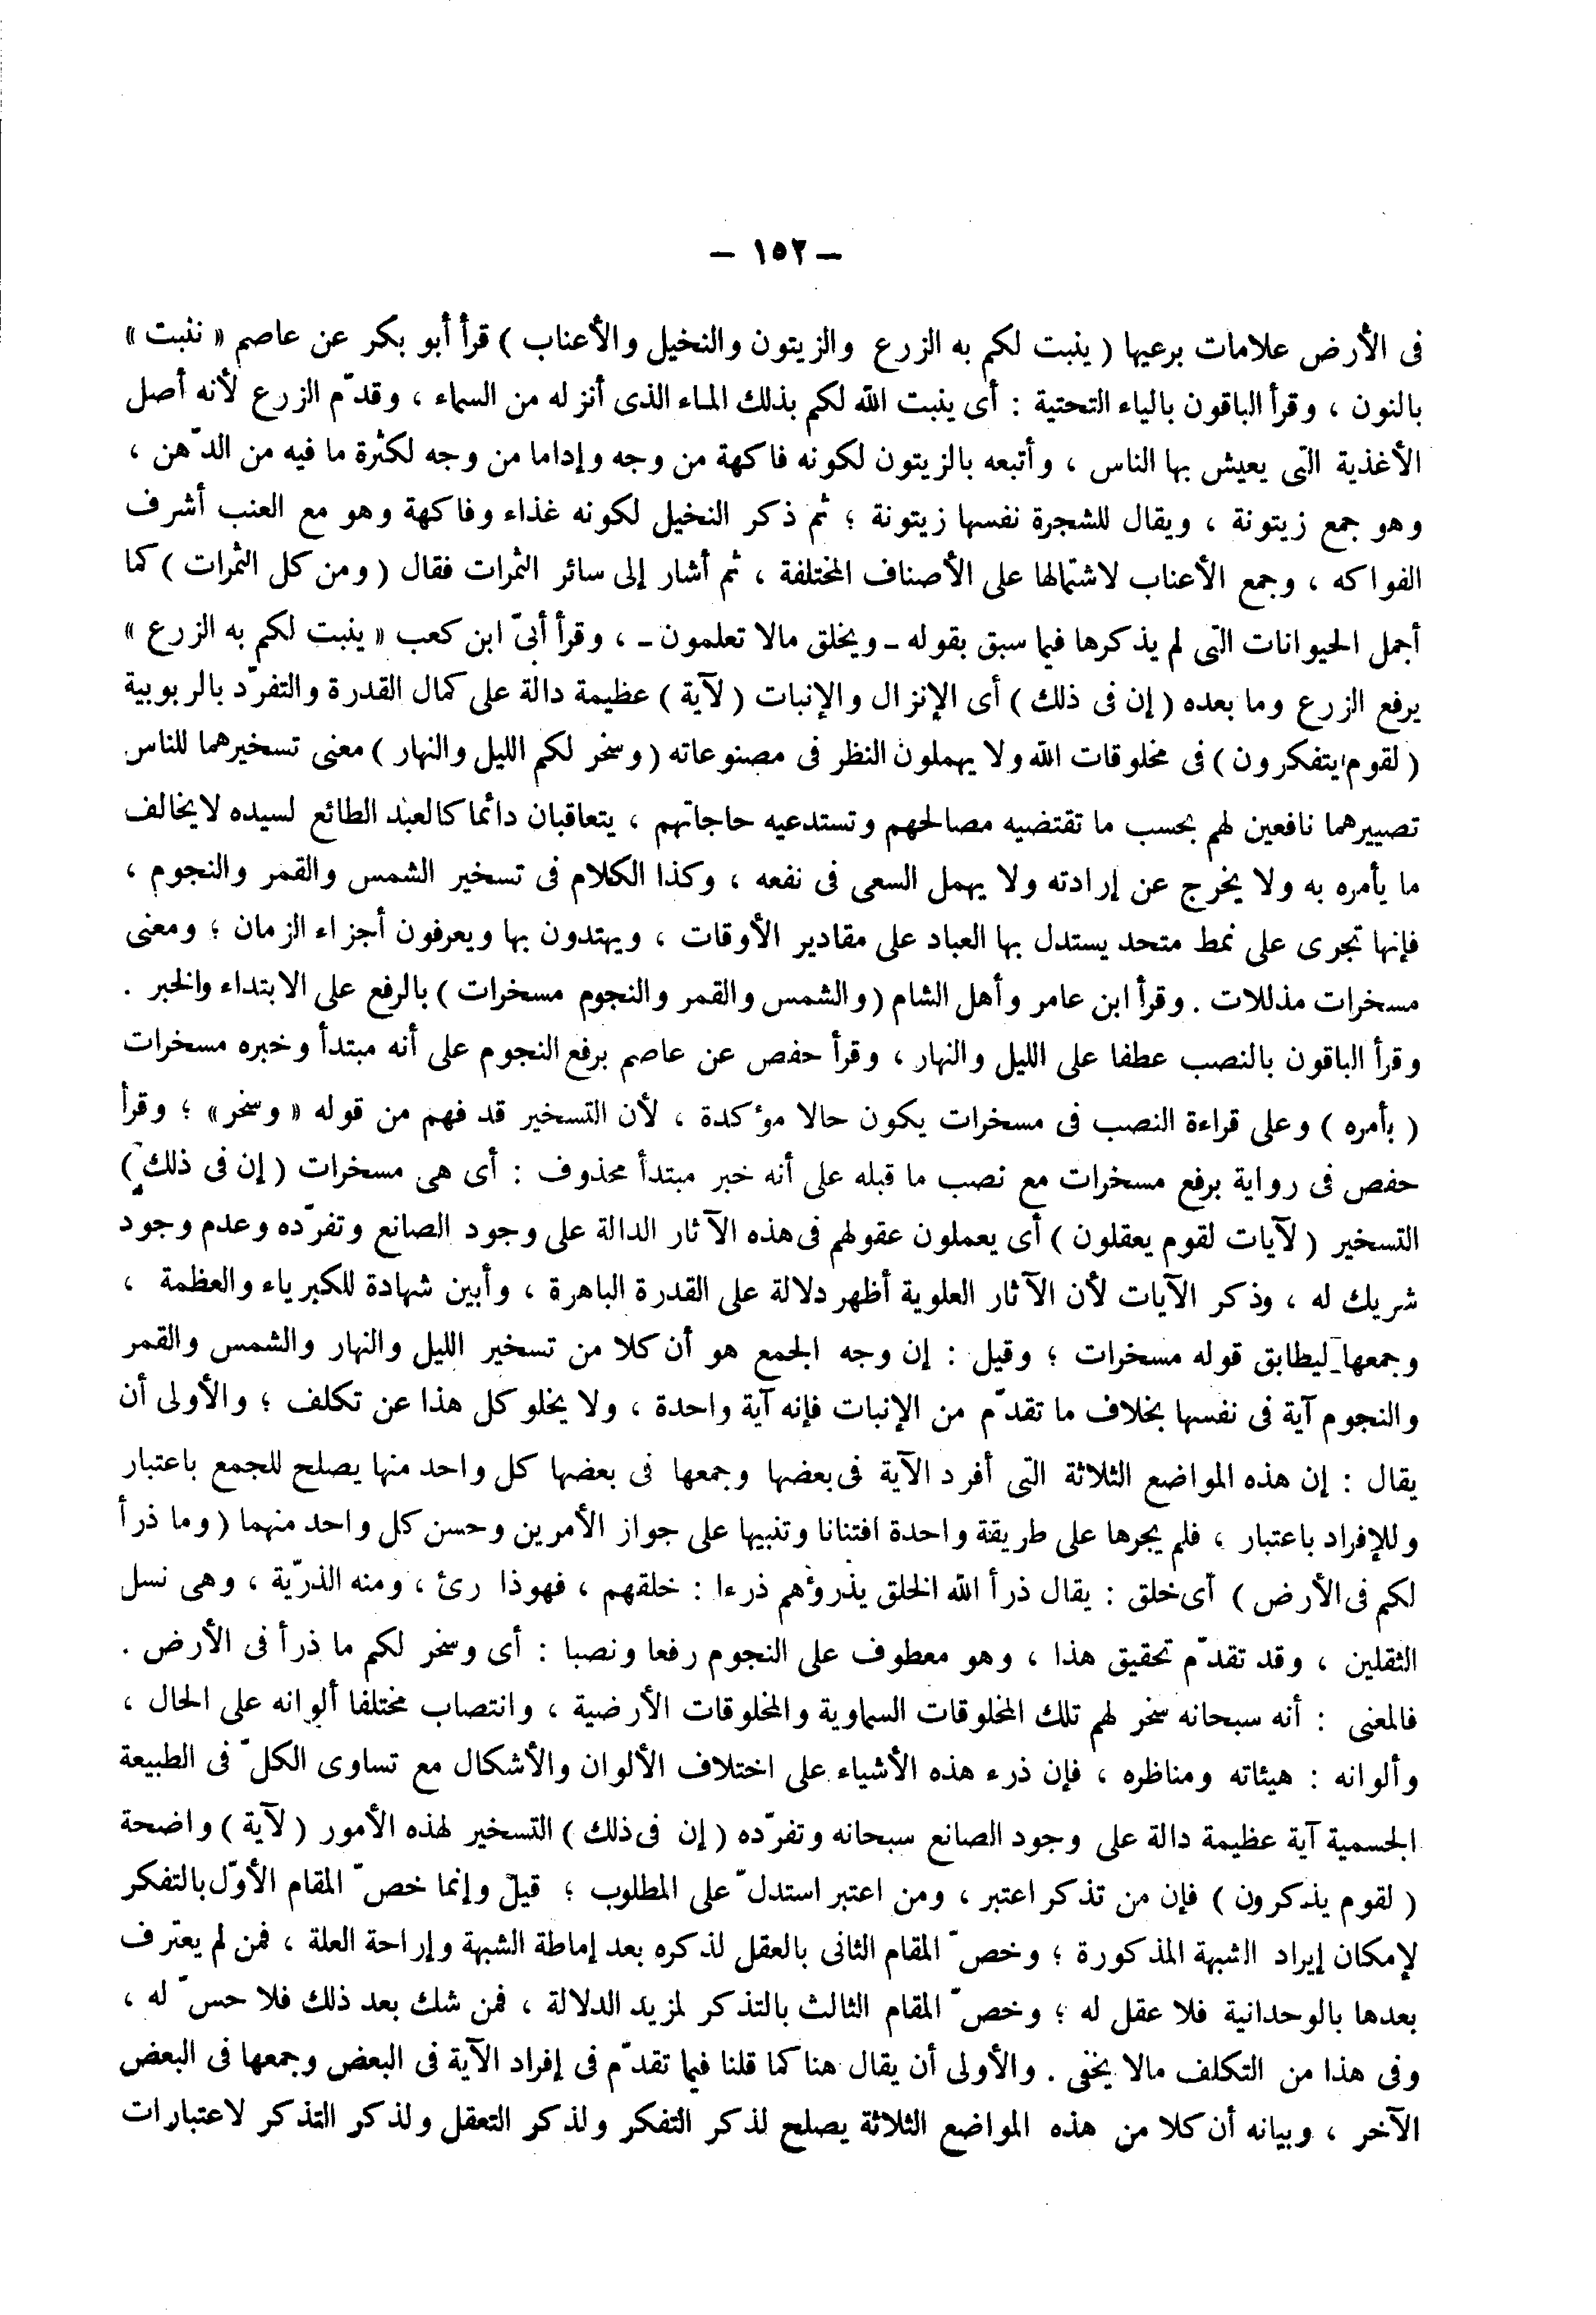 — ١٥٢ —
فى الأرض علامات برعيها ( ينبت لكم به الزرع والزيتون والنخيل والأعناب ) قرأ أبو بكر عن عاصم « ننبت »
بالنون ، وقرأ الباقون بالياء التحتية : أى ينبت الله لكم بذلك الماء الذى أنزله من السماء ، وقدّم الزرع لأنه أصل
الأغذية التى يعيش بها الناس ، وأتبعه بالزيتون لكونه فاكهة من وجه وإداما من وجه لكثرة ما فيه من الدّهن ،
وهو جمع زيتونة ، ويقال للشجرة نفسها زيتونة ؛ ثم ذكر النخيل لكونه غذاء وفاكهة وهو مع العنب أشرف
الفواكه ، وجمع الأعناب لاشتمالها على الأصناف المختلفة ، ثم أشار إلى سائر الثمرات فقال ( ومن كل الثمرات ) كما
أجمل الحيوانات التى لم يذكرها فيما سبق بقوله ـ ويخلق مالا تعلمون ـ ، وقرأ أبىّ ابن كعب « ينبت لكم به الزرع »
يرفع الزرع وما بعده ( إن فى ذلك ) أى الإنزال والإنبات ( لآية ) عظيمة دالة على كمال القدرة والتفرّد بالربوبية
( لقوم يتفكرون ) فى مخلوقات الله ولا يهملون النظر فى مصنوعاته ( وسخر لكم الليل والنهار ) معنى تسخيرهما للناس
تصييرهما نافعين لهم بحسب ما تقتضيه مصالحهم وتستدعيه حاجاتهم ، يتعاقبان دائما كالعبد الطائع لسيده لايخالف
ما يأمره به ولا يخرج عن إرادته ولا يهمل السعى فى نفعه ، وكذا الكلام فى تسخير الشمس والقمر والنجوم ،
فإنها تجرى على نمط متحد يستدل بها العباد على مقادير الأوقات ، ويهتدون بها ويعرفون أجزاء الزمان ؛ ومعنى
مسخرات مذللات . وقرأ ابن عامر وأهل الشام ( والشمس والقمر والنجوم مسخرات ) بالرفع على الابتداء والخبر .
وقرأ الباقون بالنصب عطفا على الليل والنهار ، وقرأ حفص عن عاصم برفع النجوم على أنه مبتدأ وخبره مسخرات
( بأمره ) وعلى قراءة النصب فى مسخرات يكون حالا مؤكدة ، لأن التسخير قد فهم من قوله « وسخر» ؛ وقرأ
حفص فى رواية برفع مسخرات مع نصب ما قبله على أنه خبر مبتدأ محذوف : أى هى مسخرات ( إن فى ذلك )
التسخير ( لآيات لقوم يعقلون ) أى يعملون عقولهم فى هذه الآثار الدالة على وجود الصانع وتفرّده وعدم وجود
شريك له ، وذكر الآيات لأن الآثار العلوية أظهر دلالة على القدرة الباهرة ، وأبين شهادة للكبرياء والعظمة ،
وجمعها ليطابق قوله مسخرات ؛ وقيل : إن وجه الجمع هو أن كلا من تسخير الليل والنهار والشمس والقمر
والنجوم آية فى نفسها بخلاف ما تقدّم من الإنبات فإنه آية واحدة ، ولا يخلو كل هذا عن تكلف ؛ والأولى أن
يقال : إن هذه المواضع الثلاثة التى أفرد الآية فى بعضها وجمعها فى بعضها كل واحد منها يصلح للجمع باعتبار
وللإفراد باعتبار ، فلم يجرها على طريقة واحدة افتنانا وتنبيها على جواز الأمرين وحسن كل واحد منهما ( وما ذرأ
لكم فى الأرض ) أى خلق : يقال ذرأ الله الخلق يذرؤهم ذرءا : خلقهم ، فهوذا رئ ، ومنه الذرّية ، وهى نسل
الثقلين ، وقد تقدّم تحقيق هذا ، وهو معطوف على النجوم رفعا ونصبا : أى وسخر لكم ما ذرأ فى الأرض .
فالمعنى : أنه سبحانه سخر لهم تلك المخلوقات السماوية والمخلوقات الأرضية ، وانتصاب مختلفا ألوانه على الحال ،
وألوانه : هيئاته ومناظره ، فإن ذرء هذه الأشياء على اختلاف الألوان والأشكال مع تساوى الكلّ فى الطبيعة
الجسمية آية عظيمة دالة على وجود الصانع سبحانه وتفرّده ( إن فى ذلك ) التسخير لهذه الأمور ( لآية ) واضحة
( لقوم يذكرون ) فإن من تذكر اعتبر ، ومن اعتبر استدلّ على المطلوب ؛ قيل وإنما خصّ المقام الأوّل بالتفكر
لإمكان إيراد الشبهة المذكورة ؛ وخصّ المقام الثانى بالعقل لذكره بعد إماطة الشبهة وإراحة العلة ، فمن لم يعترف
بعدها بالوحدانية فلا عقل له ؛ وخصّ المقام الثالث بالتذكر لمزيد الدلالة ، فمن شك بعد ذلك فلا حسّ له ،
وفى هذا من التكلف مالا يخفى . والأولى أن يقال هنا كما قلنا فيما تقدّم فى إفراد الآية فى البعض وجمعها فى البعض
الآخر ، وبيانه أن كلا من هذه المواضع الثلاثة يصلح لذكر التفكر ولذكر التعقل ولذكر التذكر لاعتبارات